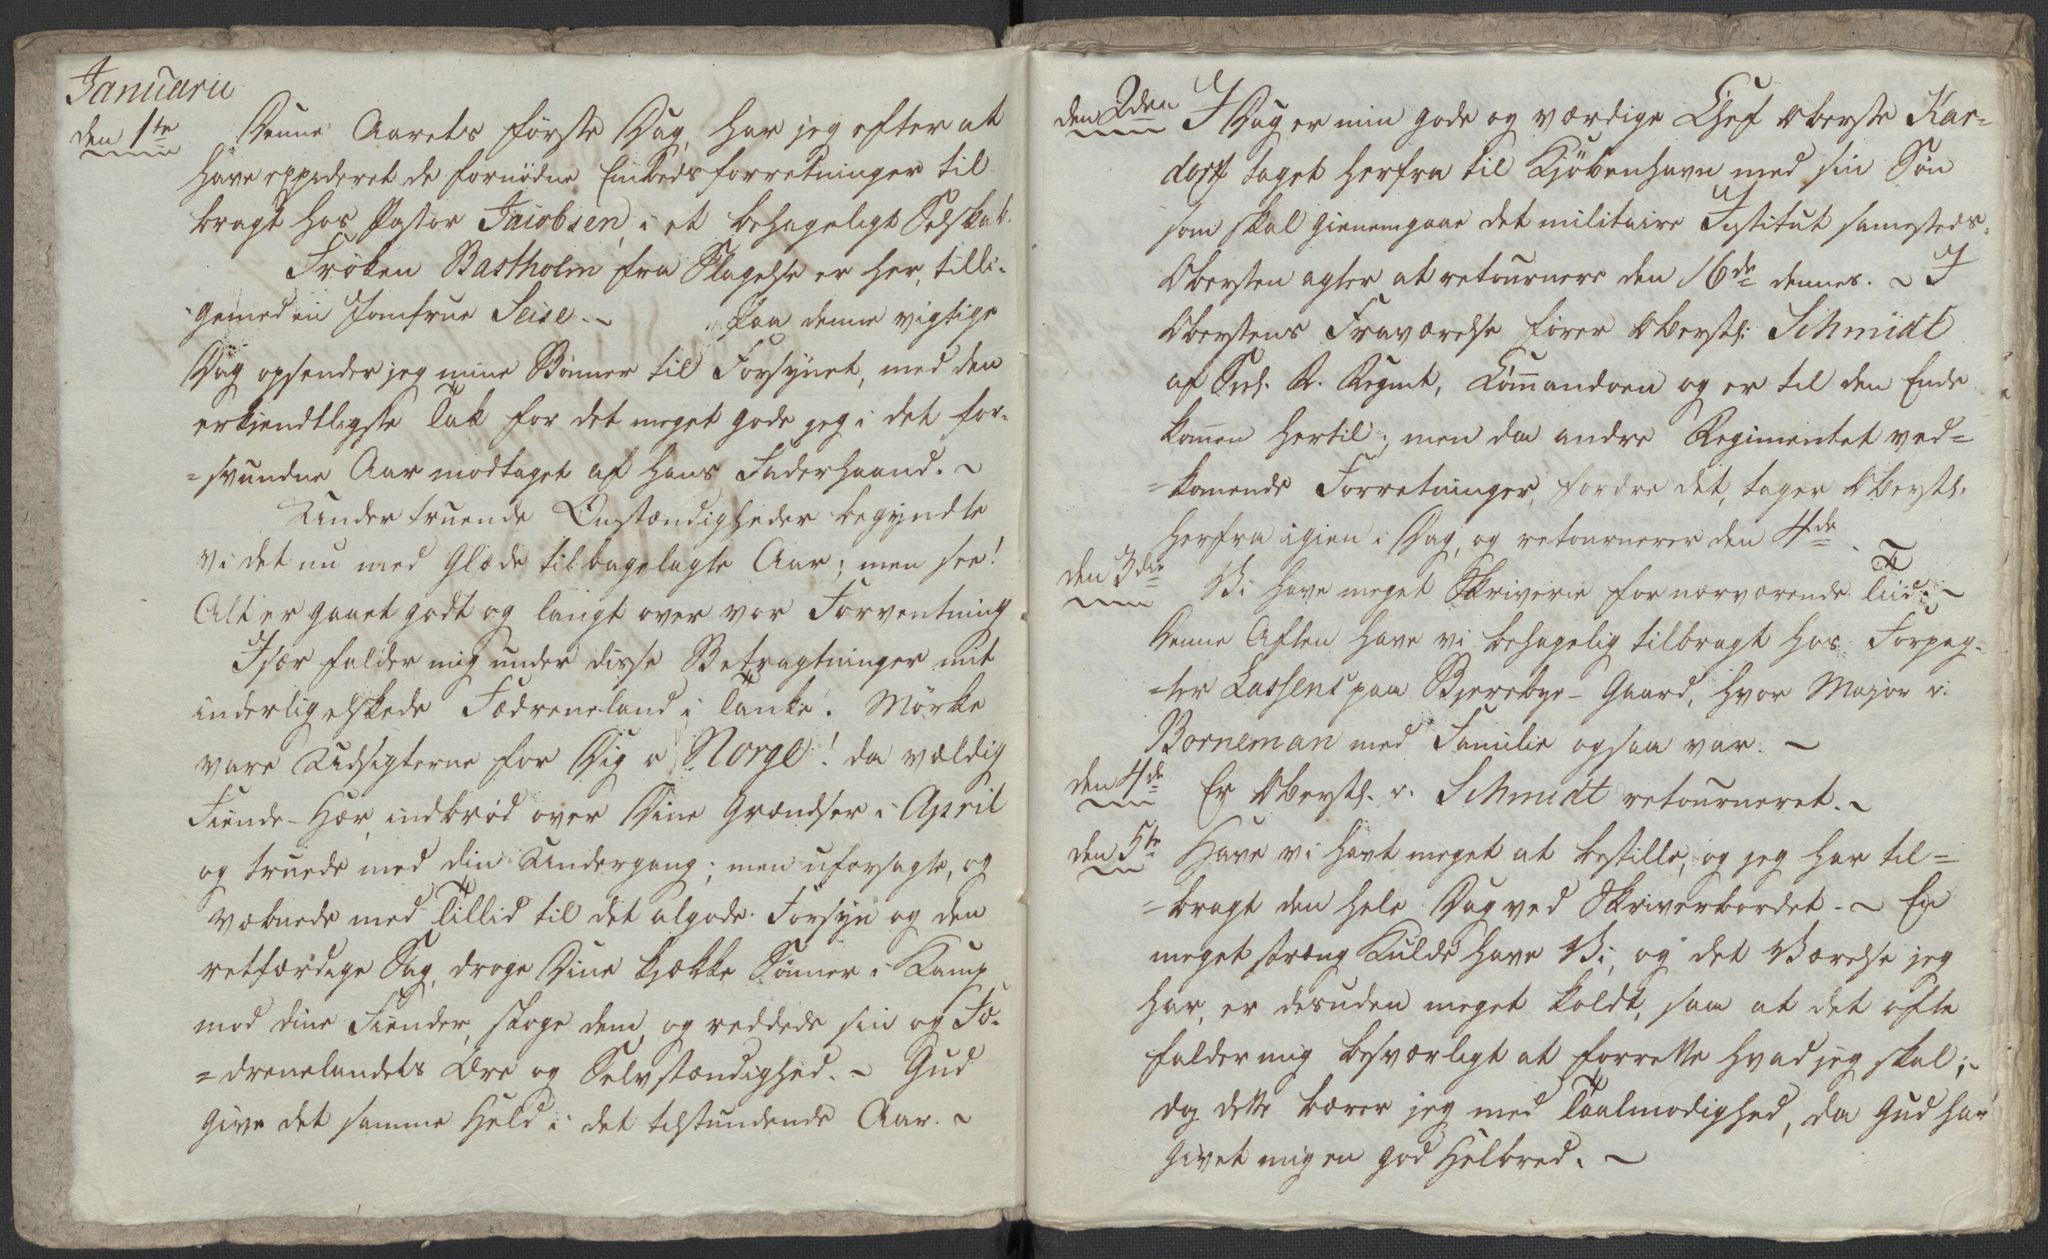 Januarii
den 1te Denne Aarets første Dag, har jeg efter at
have expideret de fornødne Embedsforretninger til
bragt hos Pastor Jacobsen, i et behageligt Selskab.
Frøken Bastholm fra Slagelse er her, tilli-
gemed en Jomfrue Seise. ~ Paa denne vigtige
Dag opsender jeg mine Bønner til Forsynet, med den
erkjendtligste Tak for det meget gode jeg i det for-
=svundne Aar modtaget af hans Faderhaand. ~
Under truende Omstændigheder begyndte
vi det nu med Glæde tilbagelagte Aar; men see!
Alt er gaaet godt og langt over vor Forventning
Især falder mig under disse Betragtninger mit
inderlig elskede Fædreneland i Tanke! Mörke
vare Udsigterne for Dig o Norge! da vældig
Fiende-Hær, indbrød over Dine Grændser i April
og truede med din Undergang; men uforsagte, og
væbnede med Tillid til det algode Forsyn og den
retfærdige Sag, droge Dine kjække Sønner i Kamp
mod dine Fiender, sloge dem, og reddede sin og Fæ-
=drenelandets Ære og Selvstændighed. ~ Gud
give det samme Held i det tilstundende Aar. ~
den 2den I Dag er min gode og værdige Chef Oberste Kar-
dorff taget herfra til Kjöbenhavn med sin Søn
som skal gienemgaae det militaire Institut samesteds.
Obersten agter at retournere den 16de dennes. ~ I
Oberstens Fraværelse fører Oberstl: Schmidt
af Siel. R. Regmt, Comandoen og er til den Ende
komen hertil; men da andre Regimentet ved=
=komende Forretninger, fordre det, tager Oberstl.
herfra igien i Dag, og retournerer den 4de.
den 3die Vi have meget Skriverie for nærværende Tiid. ~
Denne Aften have vi behagelig tilbragt hos Forpag-
=ter Lassens paa Bjerebye-Gaard, hvor Major v.
Borneman med Familie ogsaa var. ~
den 4de Er Oberstl. v. Schmidt retourneret. ~
den 5te Have vi havt meget at bestille, og jeg har til=
=bragt den hele Dag ved Skriverbordet. ~ En
meget stræng Kulde have Vi, og det Værelse jeg
har, er desuden meget koldt, saa at det ofte
falder mig besværligt at forrette hvad jeg skal; ~
dog dette bærer jeg med Taalmodighed, da Gud har
givet mig en god Helbred. ~